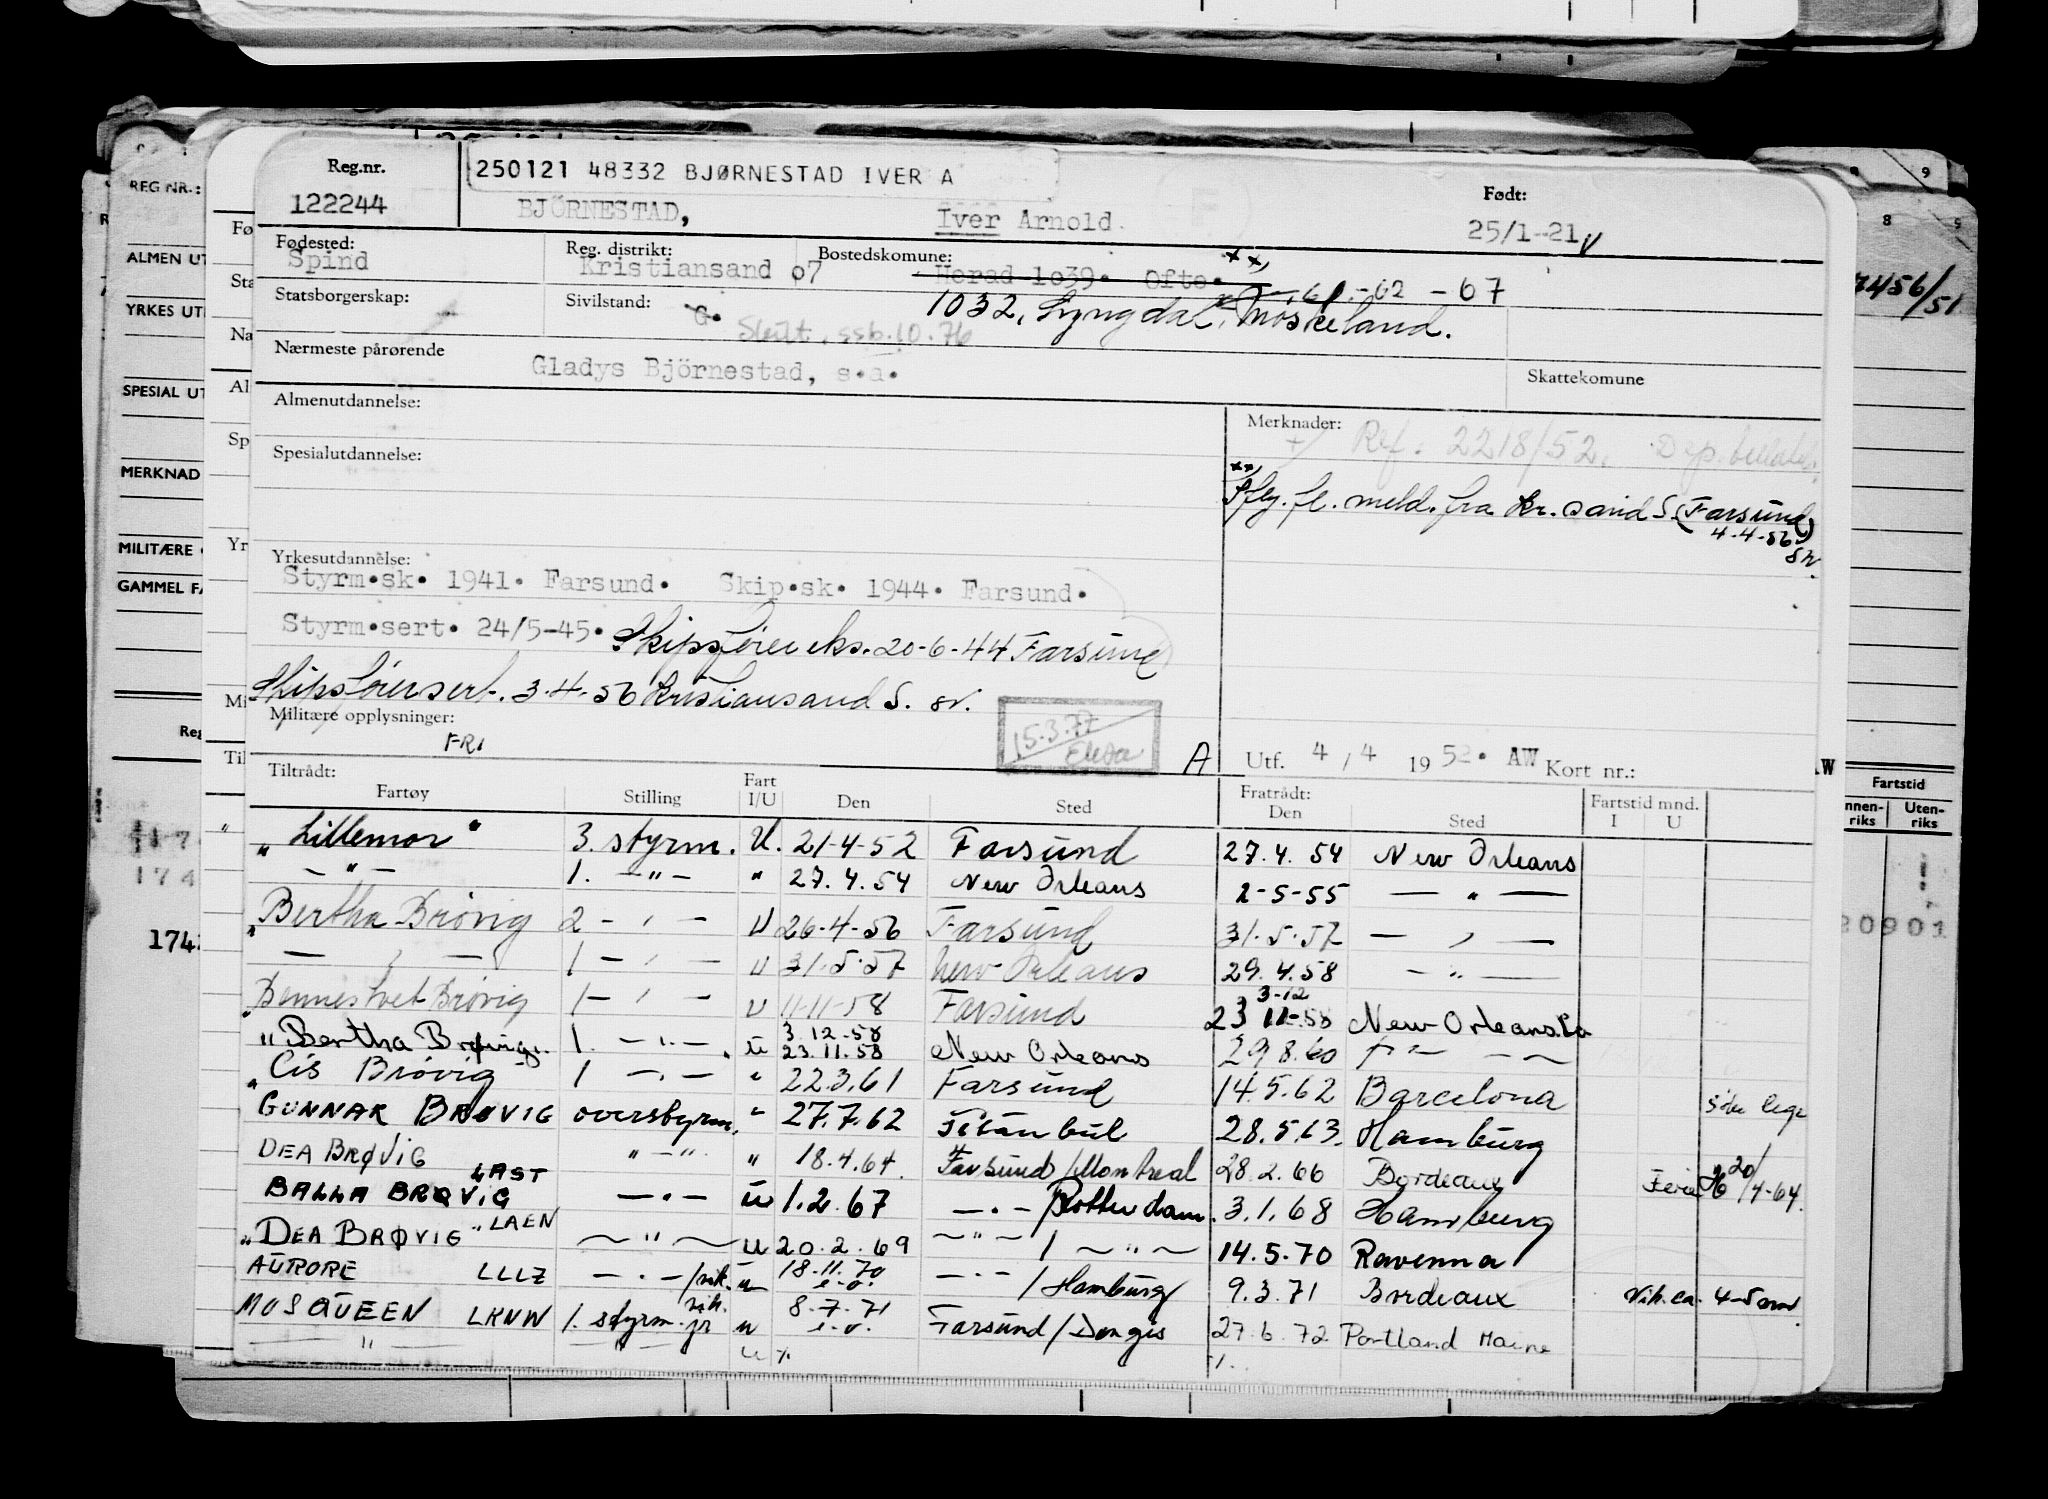 Reg.nr.
122244
250121 48332 BJØRNESTAD IVER A
BJÖRNESTAD, Iver Arnold.
Født:
25/1-21
Fødested:
Spind
Reg. distrikt:
Kristiansand 07
Bostedskomune:
Herad 1039. Ofte.
- 02 - 67
Statsborgerskap:
Sivilstand:
G.
Skilt, ssb.10.76
1032, Lyngdal, Møskeland.
Nærmeste pårørende
Gladys Björnestad, s.a.
Skattekomune
Almenutdannelse:
Merknader:
Ref: 2218/52.
Spesialutdannelse:
xx) Iflg. fl. meld. fra Kr.sand S. (Farsund)
4-4-56
sv.
Yrkesutdannelse:
Styrm.sk. 1941. Farsund. Skip.sk. 1944. Farsund.
Styrm.sert. 24/5-45. Skipsförer eks. 20-6-44 Farsund
Skipsförersert. 3-4-56 Kristiansand S. sv.
Militære opplysninger:
FRI
15.3.77
A
Utf. 4 / 4 1952. AW Kort nr.:
Tiltrådt: Fartøy Stilling Fart I/U Den Sted Fratrådt: Den Sted Fartstid mnd. I U
"Lillemor" 3. styrm. U. 21-4-52 Farsund 27.4.54 New Orleans
— " — 1. — " — " 27.4.54 New Orleans 2-5-55 — " —
"Bertha Brövig 2 — " — U 26-4-56 Farsund 31.5.57 — " —
— " — 1 — " — U 31.5.57 New Orleans 29.4.58 — " —
"Bennestvet Brövig 1 — " — U 11-11-58 Farsund 23 11-58 3-12 New Orleans La
"Bertha Brøvig. 1. — " — U 3.12.58 23.11.58 New Orleans 29.8.60 — " —
"Cis Brövig 1 — " — " 22.3.61 Farsund 14.5.62 Barcelona Söke lege
"GUNNAR BRØVIG overstyrm. " 27.7.62 Istanbul 28.5.63. Hamburg
DEA BRØVIG " — " " 18.4.64. Farsund/Montreal 28.2.66 Bordeaux Ferie 20/4-64.
BALLA BRØVIG LAST — " — U 1.2.67 — " — /Rotterdam. 3.1.68 Hamburg
"DEA BRØVIG "LAEN — " — U 20.2.69 — " — / — " — 14.5.70 Ravenna
AURORE LLLZ — " — /vik. U 18.11.70 e.o. — " — / Hamburg 9.3.71 Bordeaux Vik. ca. 4-5 mnd.
MOSQUEEN LKNW 1. styrm. vik. jr U 8-7-71 e.o. Farsund/Dongis 27.6.72 Portland Maine
— " — — " — U
REG NR.:
ALMEN UT
YRKES UT
SPESIAL UT
MERKNAD
MILITÆRE
GAMMEL FA
Fø
Sta
Na
Al
Sp
Yr
Mi
Til
Reg
174
8 9
8
7456/51
AW
Fartstid
nnen-riks Uten-riks
20901